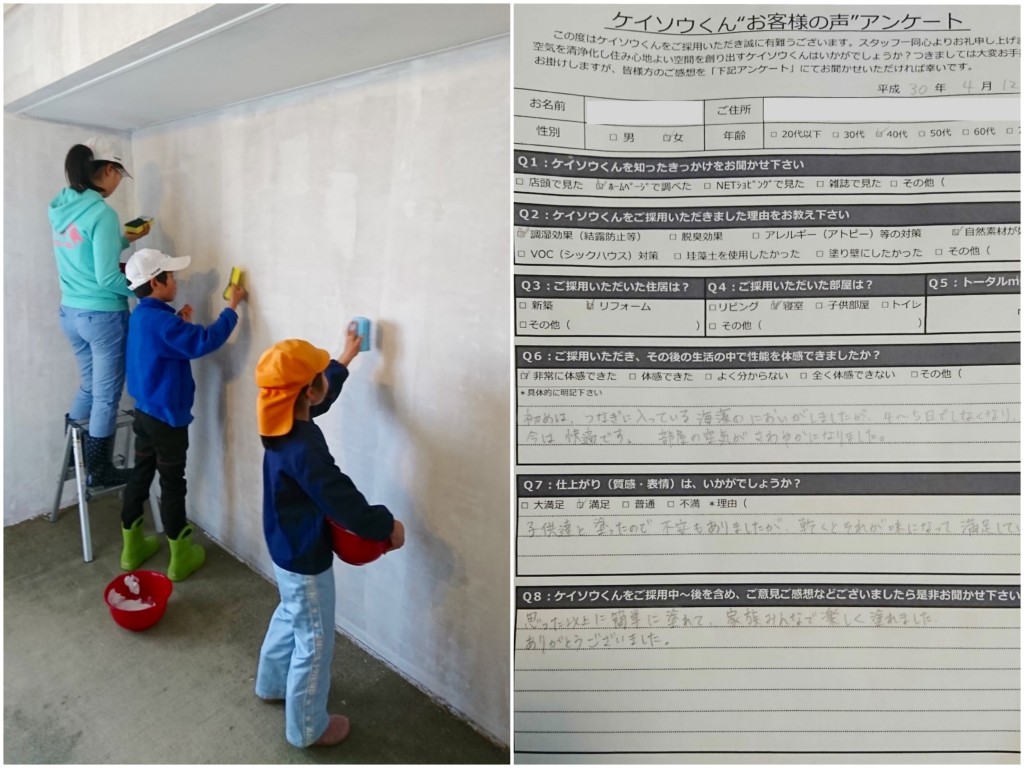 ケイソウくん“お客様の声”アンケート
この度はケイソウくんをご採用いただき誠に有難うございます。スタッフ一同心よりお礼申し上げま
空気を清浄化し住み心地よい空間を創り出すケイソウくんはいかがでしょうか？つきましては大変お手
お掛けしますが、皆様方のご感想を「下記アンケート」にてお聞かせいただければ幸いです。
平成 30 年 4 月 12
お名前 ご住所
性別 □ 男 ☑女 年齢 □ 20代以下 □ 30代 ☑ 40代 □ 50代 □ 60代 □ 7
Q1：ケイソウくんを知ったきっかけをお聞かせ下さい
□ 店頭で見た ☑ ﾎｰﾑﾍﾟｰｼﾞで調べた □ NETｼｮﾋﾟﾝｸﾞで見た □ 雑誌で見た □ その他（
Q2：ケイソウくんをご採用いただきました理由をお教え下さい
☑ 調湿効果（結露防止等） □ 脱臭効果 □ アレルギー（アトピー）等の対策 ☑ 自然素材が
□ VOC（シックハウス）対策 □ 珪藻土を使用したかった □ 塗り壁にしたかった □ その他（
Q3：ご採用いただいた住居は？ Q4：ご採用いただいた部屋は？ Q5：トータルm
□ 新築 ☑ リフォーム □ リビング ☑ 寝室 □ 子供部屋 □ トイレ
□ その他（ ） □ その他（ ）
Q6：ご採用いただき、その後の生活の中で性能を体感できましたか？
☑ 非常に体感できた □ 体感できた □ よく分からない □ 全く体感できない □ その他（
＊具体的に明記下さい
初めは、つなぎに入っている海藻のにおいがしましたが、4～5日でしなくなり、
今は快適です。 部屋の空気がさわやかになりました。
Q7：仕上がり（質感・表情）は、いかがでしょうか？
□ 大満足 ☑ 満足 □ 普通 □ 不満 ＊理由（
子供達と塗ったので不安もありましたが、乾くとそれが味になって満足してい
Q8：ケイソウくんをご採用中～後を含め、ご意見ご感想などございましたら是非お聞かせ下さい
思った以上に簡単に塗れて、家族みんなで楽しく塗れました。
ありがとうございました。